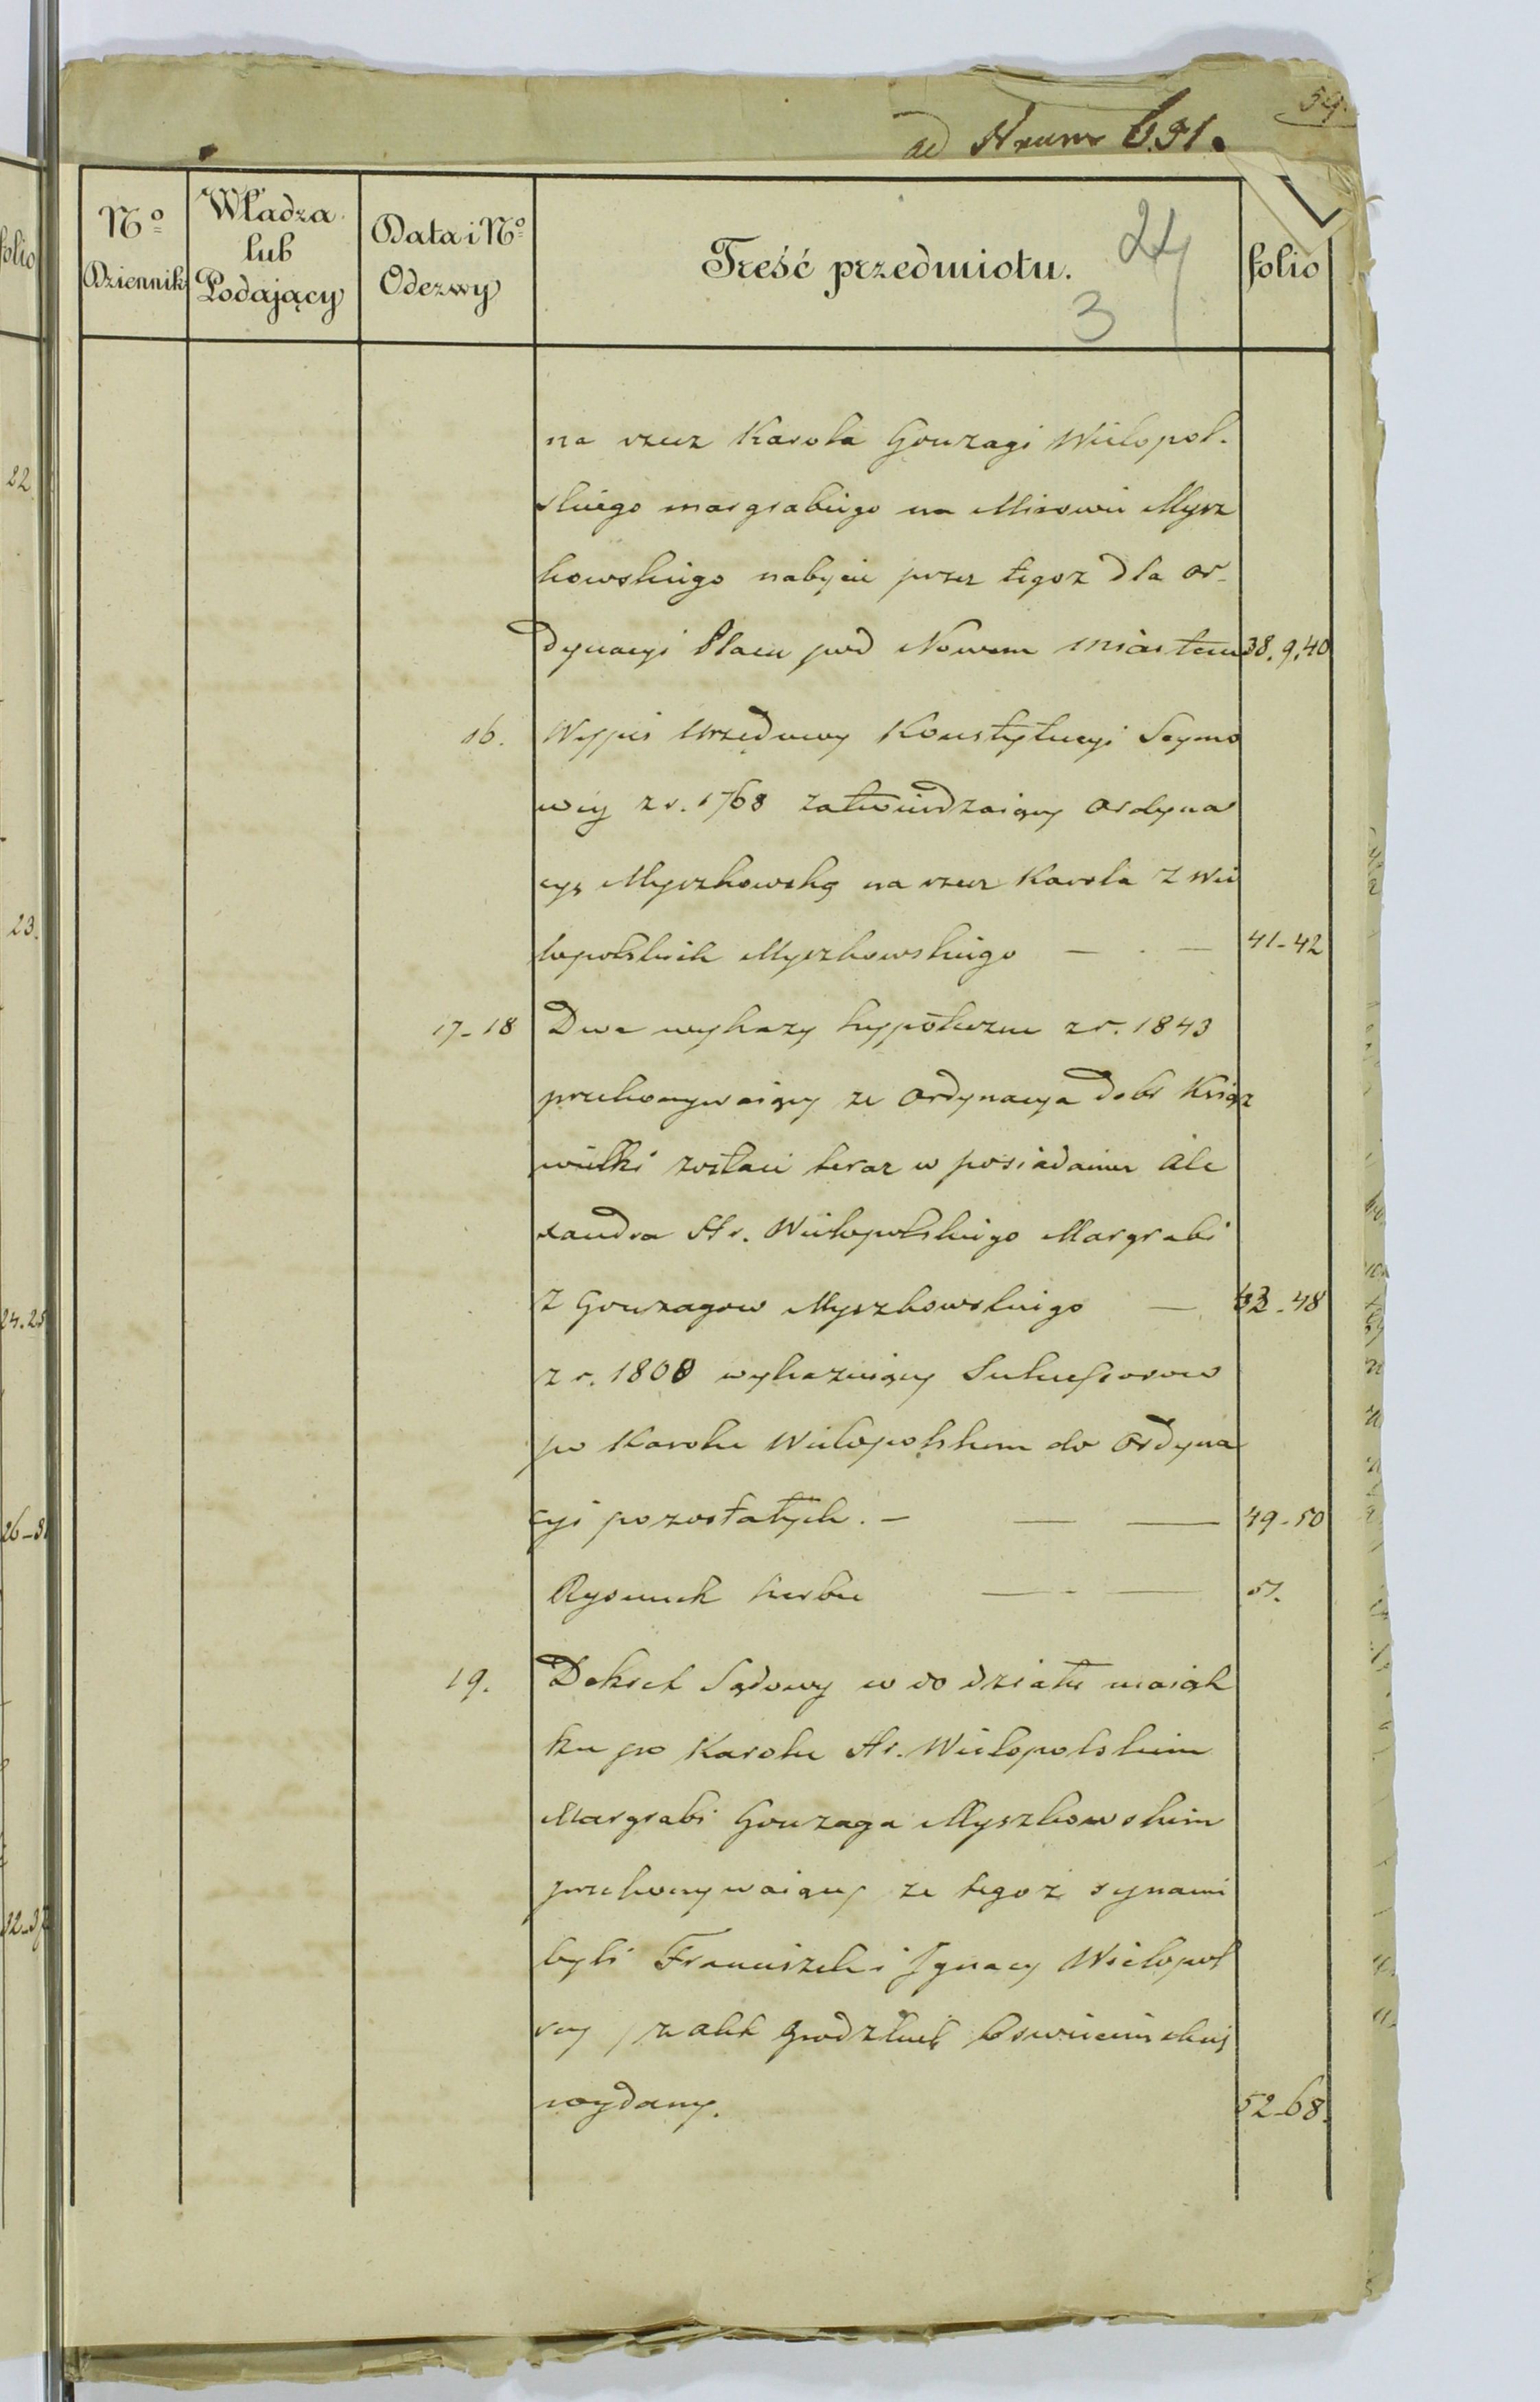 59.
ad Num 691.
Nº Dziennik
Władza lub Podający
Data i Nº Odezwy
Treść przedmiotu.
folio
24
3
na rzecz Karola Gonzagi Wielopol-
skiego margrabiego na Mirowie Mysz
kowskiego nabycie przez tegoz dla or-
dynacyi Placu pod Nowem miastem 38. 9. 40
16. Wypis Urzędowy Konstytucyi Seymo
wej z r. 1768 zatwierdzaiący ordyna
cyą Myszkowską na rzecz Karola z Wie
lopolskich Myszkowskiego — . — 41-42
17-18 Dwa wykazy hypoteczne z r. 1843
przekonywaiący ze ordynacya dobr Książ
wielki zostaie teraz w posiadaniu Ale
xandra Hr. Wielopolskiego Margrabi
z Gonzagow Myszkowskiego — 43-48
z r. 1808 wykazuiący Sukcessorow
po Karolu Wielopolskim do ordyna
cyi pozostałych. — — — 49-50
Rysunek herbu — - — 51.
19. Dekret Sądowy w do działu maiąt
ku po Karolu Hr. Wielopolskim
Margrabi Gonzaga Myszkowskim
przekonywaiący ze tegoz synami
byli Franciszek i Ignacy Wielopol
scy z akt grodzkich Oswiecimskiej
wydany. 52-68.
folio
22.
23.
24.25
26-31
32-37